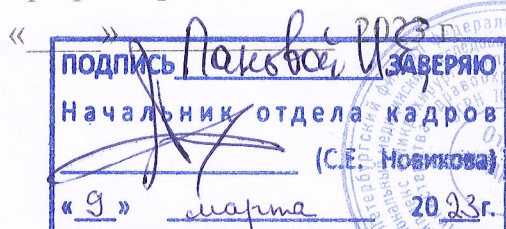 «____» ________ 2023 г.
ПОДПИСЬ Пановой И.Е. ЗАВЕРЯЮ
Начальник отдела кадров
(С.Е. Новикова)
« 9 » марта 2023г.